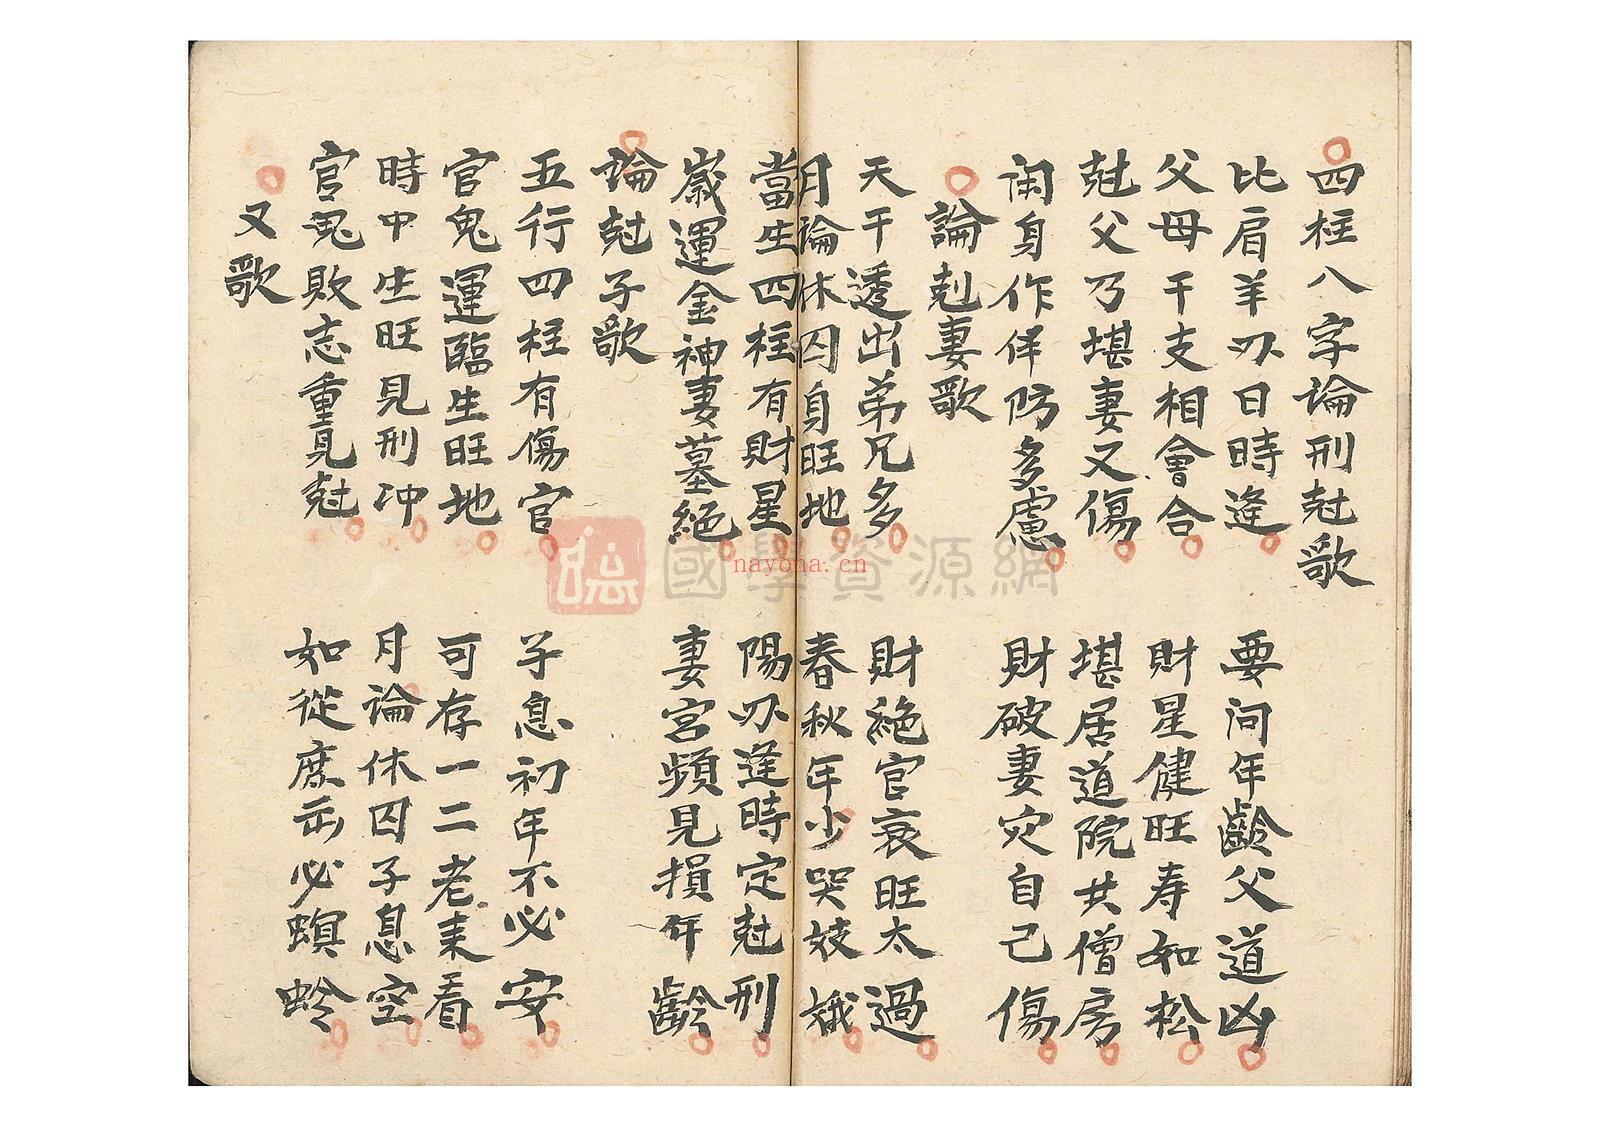 四柱八字論刑尅歌
比肩羊刃日時逢 要问年齡父道凶
父母干支相會合 財星健旺寿如松
尅父乃堪妻又傷 堪居道院共僧房
闲身作伴防多慮 財破妻灾自己傷
論剋妻歌
天干透出弟兄多 財絶官衰旺太過
月論休囚身旺地 春秋年少哭姣娥
當生四柱有財星 陽刃逢時定尅刑
歲運金神妻墓絕 妻宮頻見損年齡
論尅子歌
五行四柱有傷官 子息初年不必安
官鬼運臨生旺地 可存一二老来看
時中生旺見刑冲 月論休囚子息空
官鬼敗志重見尅 如從庶出必螟蛉
又歌
國學資源網
nayona.cn